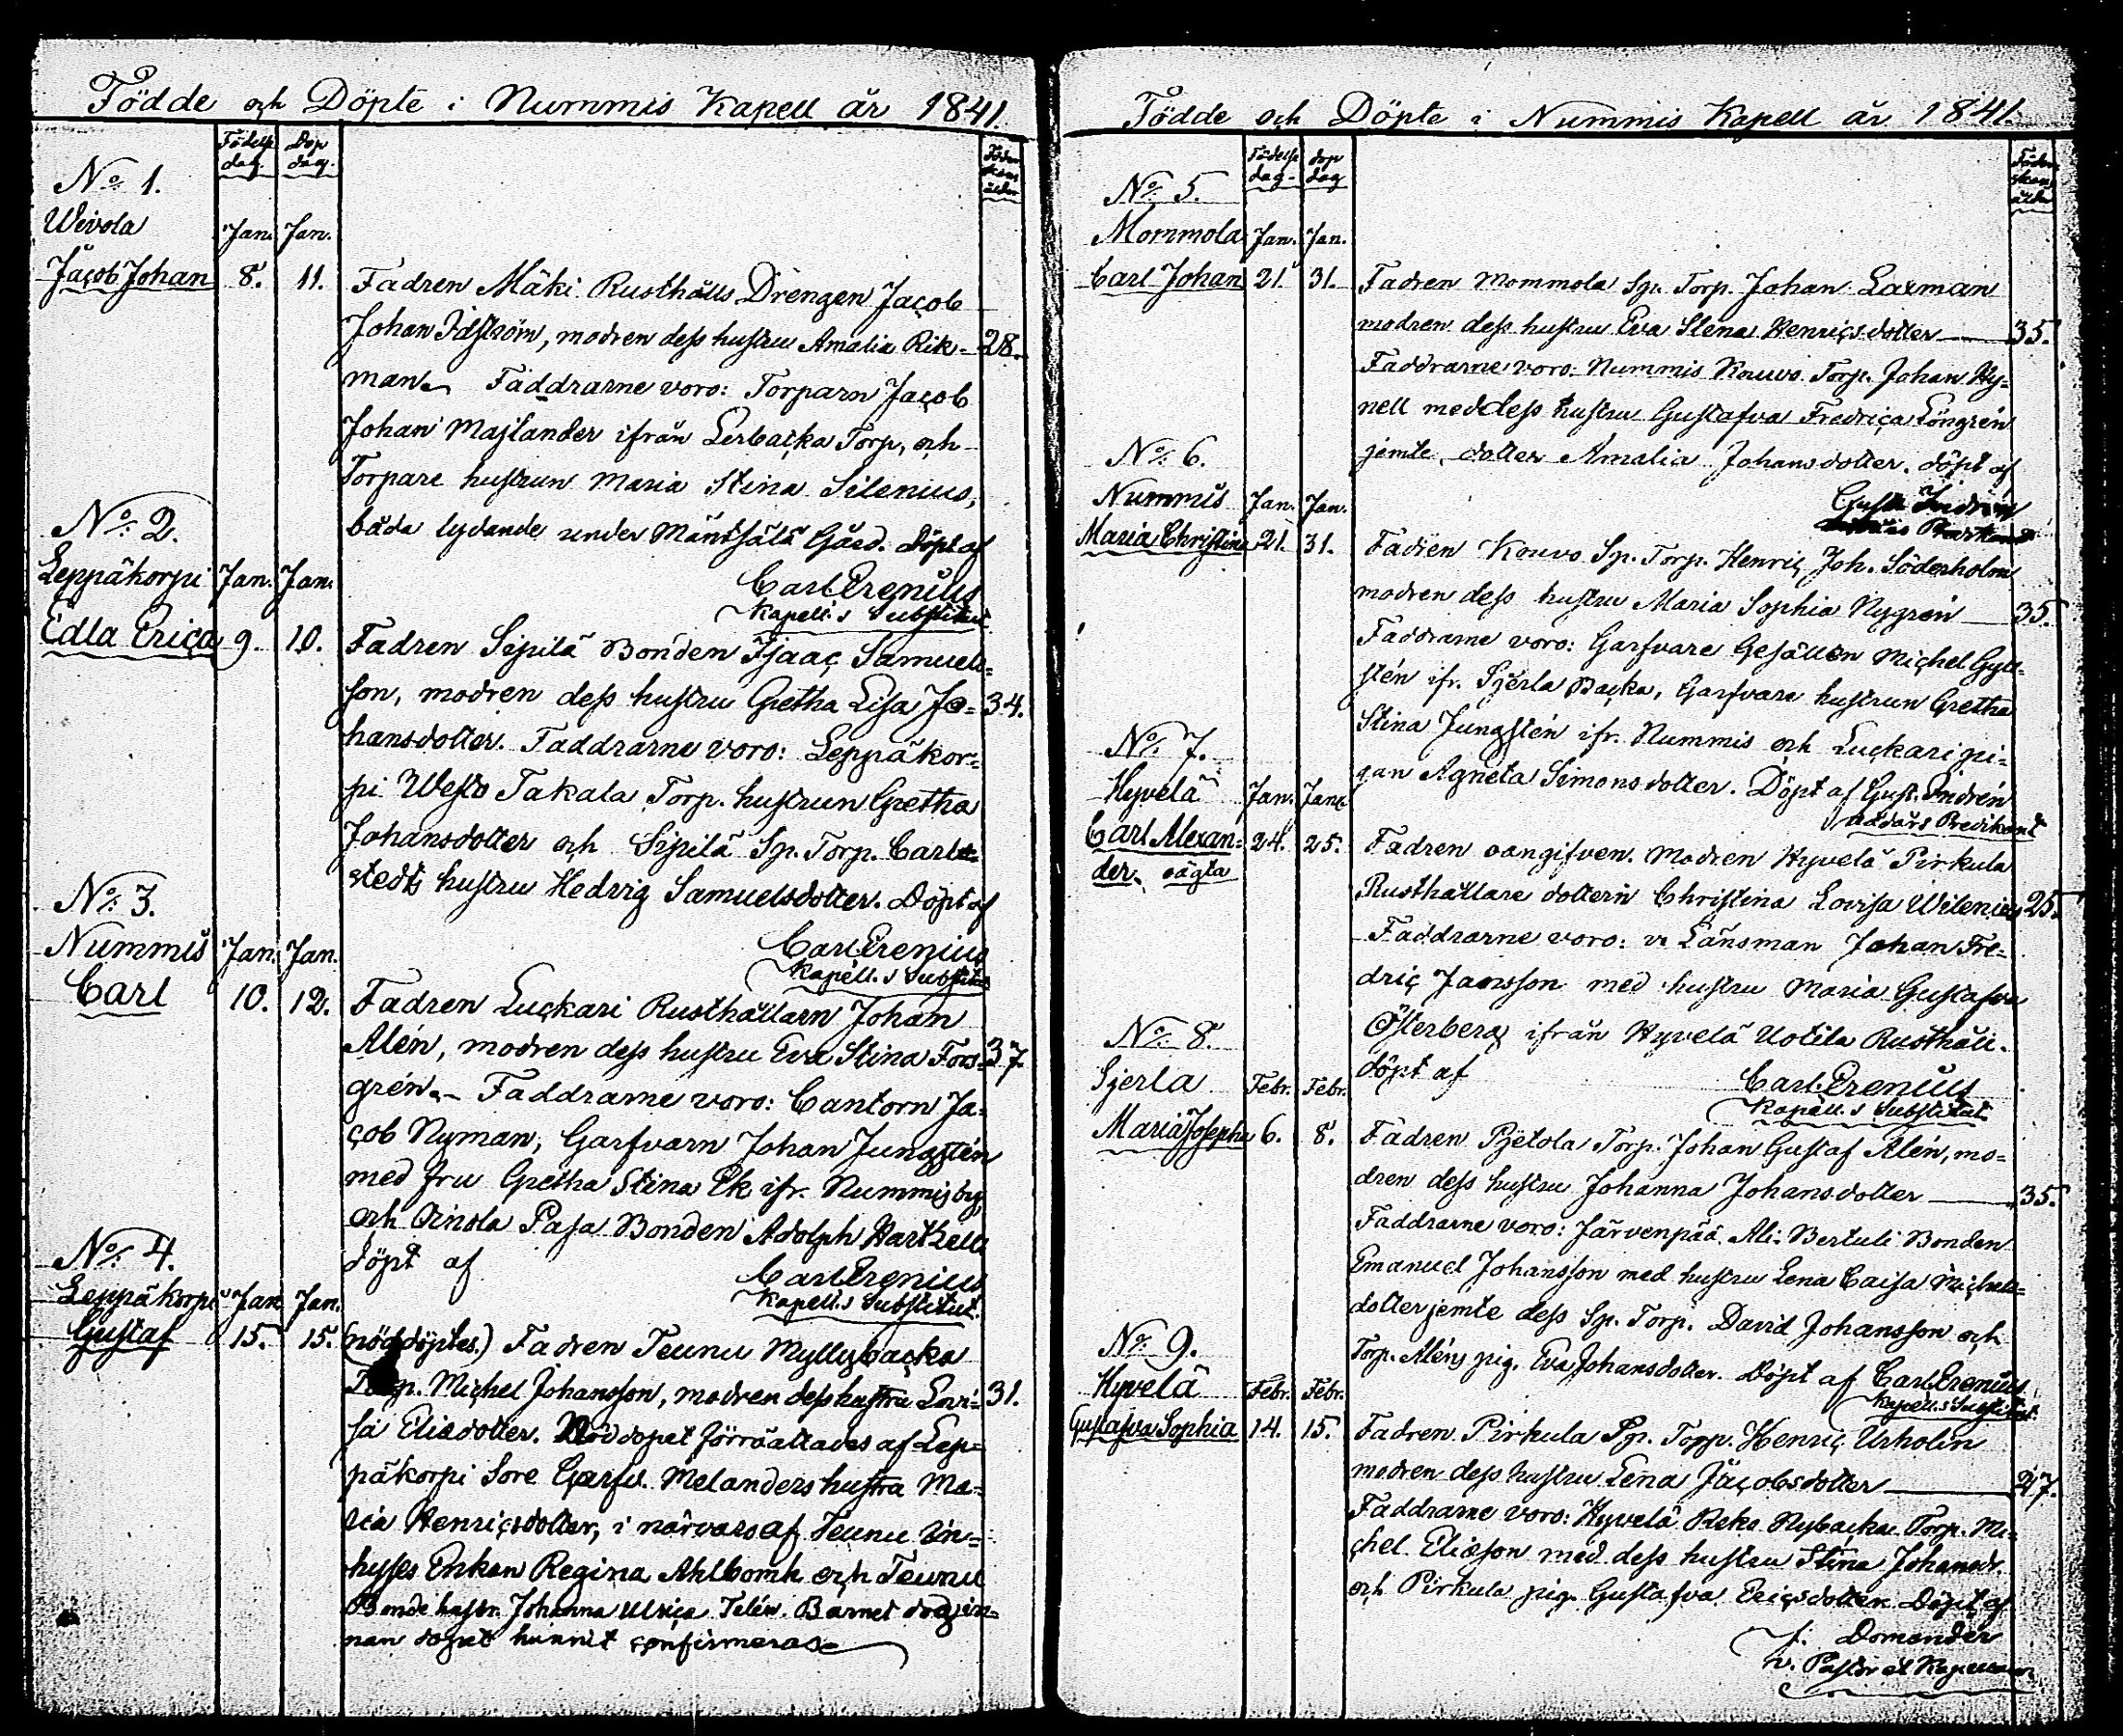 Födde och Döpte i Nummis Kapell år 1841.
Födelse dag. Dop dag. Föder skans ålder
No: 1.
Wivola Jan. Jan.
Jacob Johan 8. 11. Fadren Mäki Rusthålls Drengen Jacob
Johan Idström, modren dess hustru Amalia Rik= 28.
man. Faddrarne voro: Torparn Jacob
Johan Majlander ifrån Lerbacka Torp, och
Torpare hustrun Maria Stina Silenius,
båda lydande under Mäntsälä Gård. Döpt af
Carl Erenius
Kapell.s Substitut.
No: 2.
Leppäkorpi Jan. Jan.
Edla Erica 9. 10. Fadren Sipilä Bonden Isaac Samuels=
son, modren dess hustru Gretha Lisa Jo= 34.
hansdotter. Faddrarne voro: Leppäkor=
pi Westo Takala Torp. hustrun Gretha
Johansdotter och Sipilä Sp. Torp. Carl
stedts hustru Hedvig Samuelsdotter. Döpt af
Carl Erenius
Kapell.s Substitut
No: 3.
Nummis Jan. Jan.
Carl 10. 12. Fadren Luckari Rusthållarn Johan
Alén, modren dess hustru Eva Stina Fors= 37.
grén. Faddrarne voro: Cantorn Ja=
cob Nyman, Garfvarn Johan Jungstén
med fru Gretha Stina Ek ifr. Nummis by,
och Oinola Pasa Bonden Adolph Hartzell
döpt af Carl Erenius
Kapell.s Substitut.
No: 4.
Leppäkorpi Jan. Jan.
Gustaf 15. 15. (nöddöptes.) Fadren Teunu Myllybacka
Torp. Michel Johansson, modren dess hustru Lovi= 31.
sa Eliedotter. Nöddopet förrättades af Lep=
päkorpi Sore Garfv. Melanders hustru Ma=
ria Henricsdotter, i närvaro af Teunu in=
hyses Enkan Regina Ahlbomh och Teunu
Bonde hustr. Johanna Ulrica Telén. Barnet dog in=
nan dopet hunnit confirmeras.
Födde och Döpte i Nummis Kapell år 1841.
Födelse dag. dop dag Föder skans ålder
No: 5.
Mommola Jan. Jan.
Carl Johan 21. 31. Fadren Mommola Sp. Torp. Johan Laxman
modren dess hustru Eva Stena Henricsdotter 35.
Faddrarne voro: Nummis Kouvo Torp. Johan Hy=
nell med dess hustru Gustafva Fredrica Löngrén
jemte dotter Amalia Johansdotter. döpt af
Gust. Indrén
No: 6.
Nummis Jan. Jan.
Maria Christina 21. 31. Fadren Kouvo Sp. Torp. Henric Joh. Söderholm
modren dess hustru Maria Sophia Nygrén 35.
Faddrarne voro: Garfvare Gesällen Michel Gyll=
stén ifr. Sjerla Backa, Garfvare hustrun Gretha
Stina Jungstén ifr. Nummis och Luckari pi=
gan Agneta Simonsdotter. Döpt af Gust. Indrén
Predikant
No: 7.
Hyvelä Jan. Jan.
Carl Alexan= 24. 25. Fadren oangifven. Modren Hyvelä Pirkula
der. oägta Rusthållare dottern Christina Lovisa Wilenius 25.
Faddrarne voro: v. Länsman Johan Fre=
dric Jansson med hustru Maria Gustafva
Österberg ifrån Hyvelä Uotila Rusthåll.
döpt af Carl Erenius
Kapell.s Substitut
No: 8.
Sjerla Febr. Febr.
Maria Josepha 6. 8. Fadren Pjetola Torp. Johan Gustaf Alén, mo=
dren dess hustru Johanna Johansdotter 35.
Faddrarne voro: Järvenpää Ali-Bertuli Bonden
Emanuel Johansson med hustru Lena Caisa Michels=
dotter jemte dess Sp. Torp. David Johansson och
Torp. Aléns pig. Eva Johansdotter. Döpt af Carl Erenius
Kapell.s Substitut.
No: 9.
Hyvelä Febr. Febr.
Gustafva Sophia 14. 15. Fadren Pirkula Sp. Torp. Henric Urholin
modren dess hustru Lena Jacobsdotter 27.
Faddrarne voro: Hyvelä Reko Nybacka Torp. Mi=
chel Eliasson med dess hustru Stina Johansdr.
och Pirkula pig. Gustafva Ericsdotter. Döpt af
Domander
v. Pastor et Kapellan